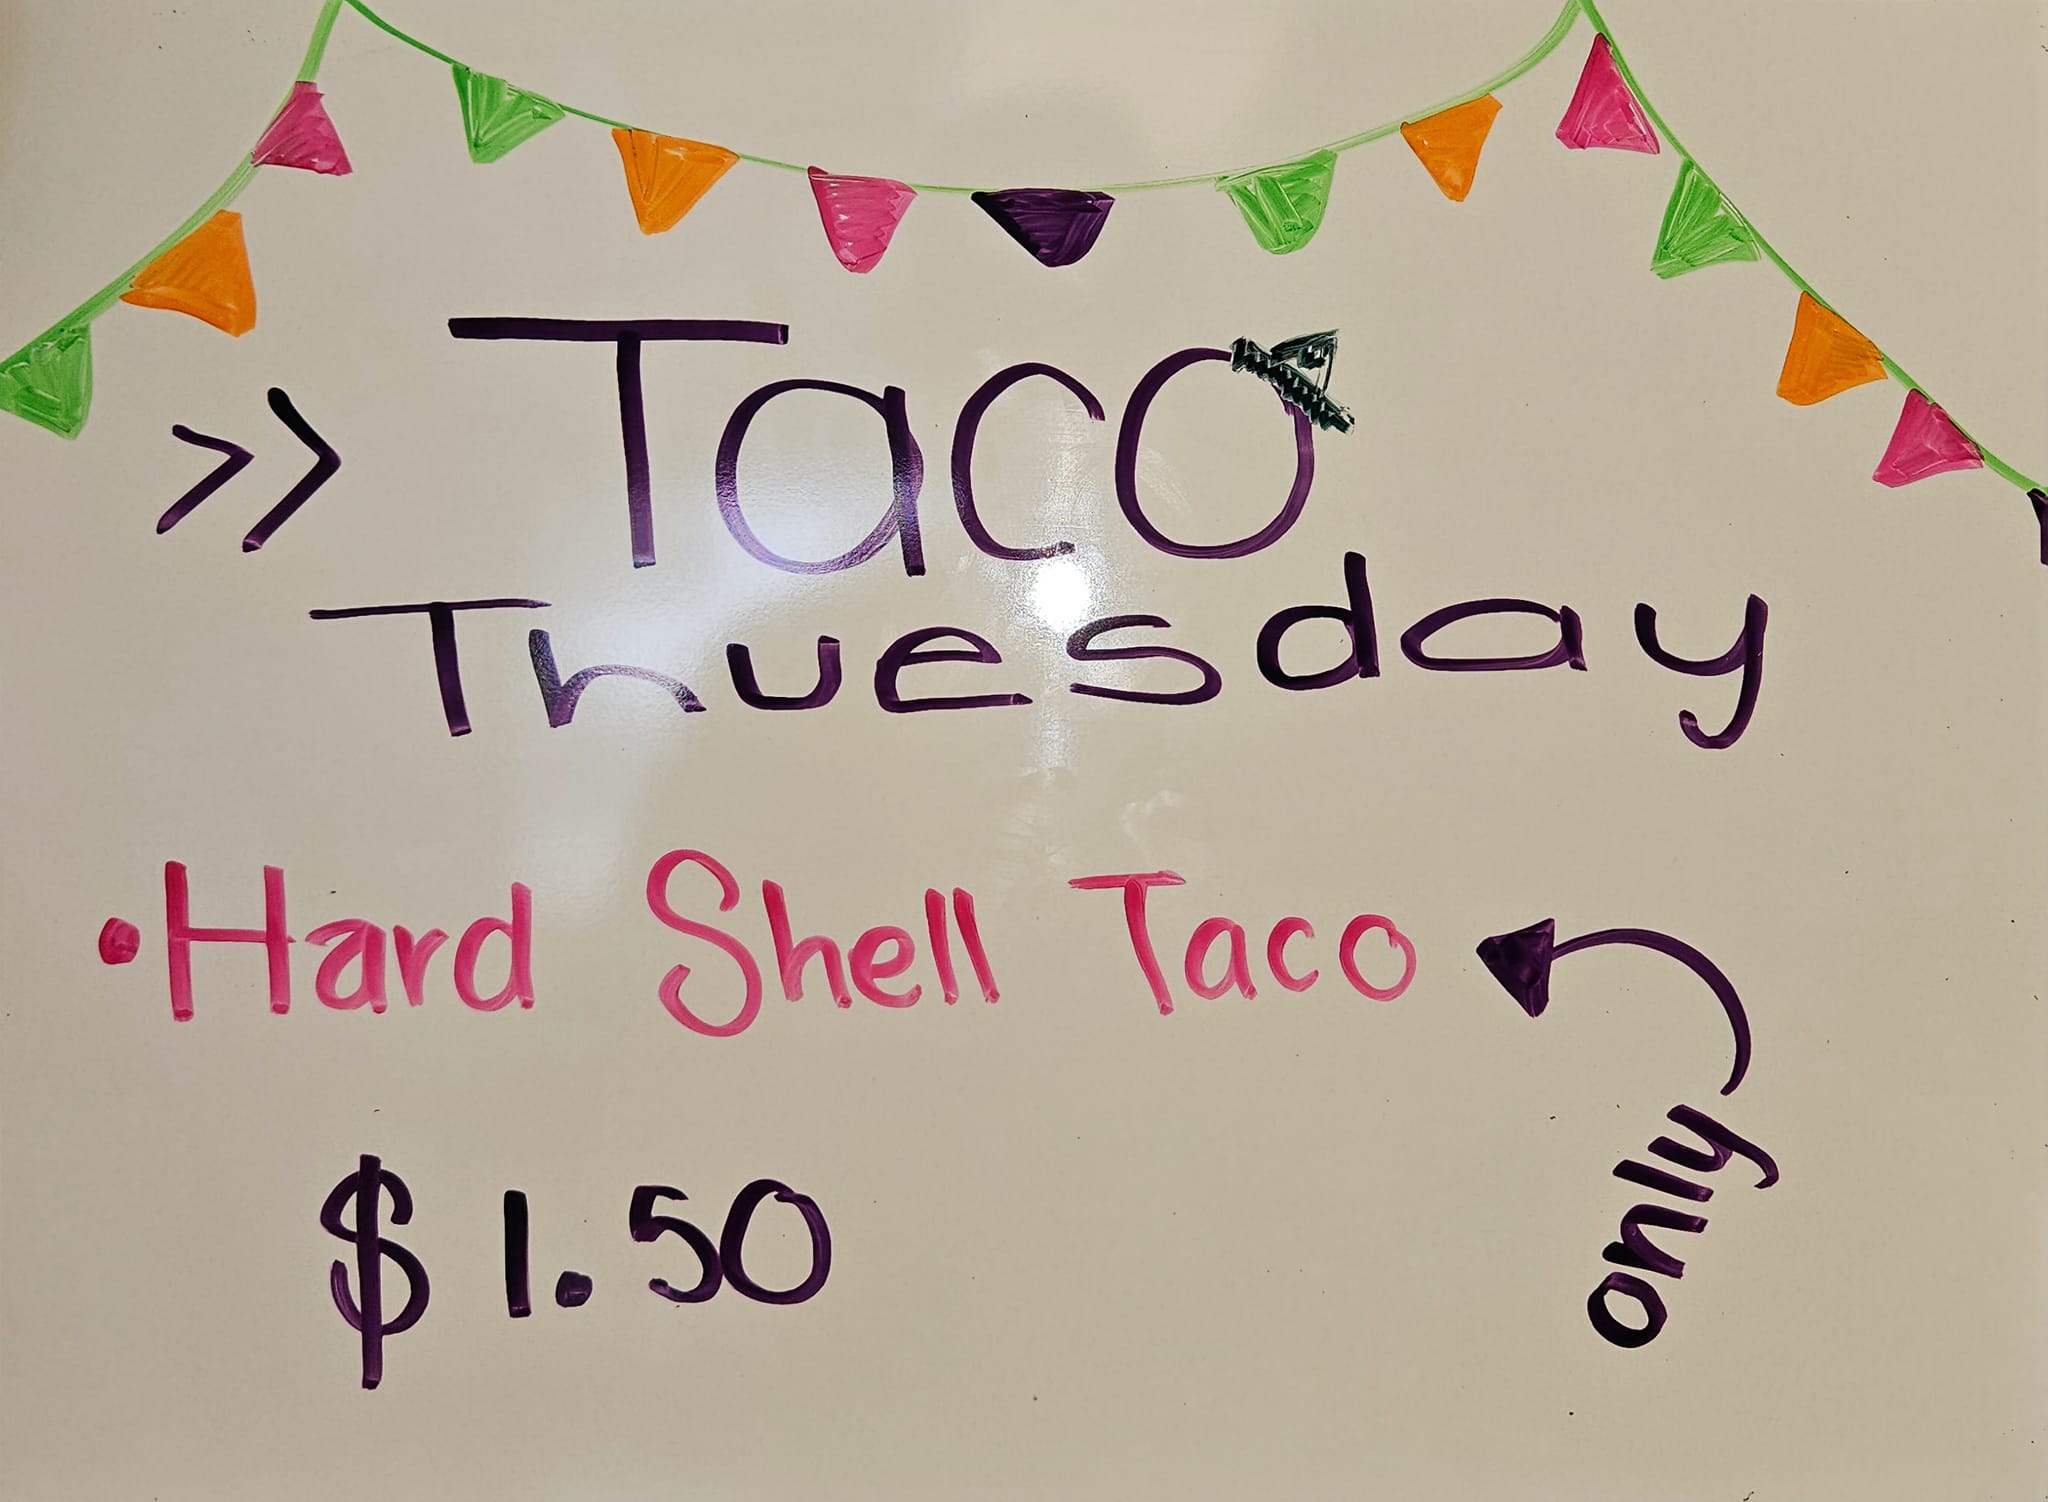 >> Taco
Thuesday
• Hard Shell Taco
only
$1.50